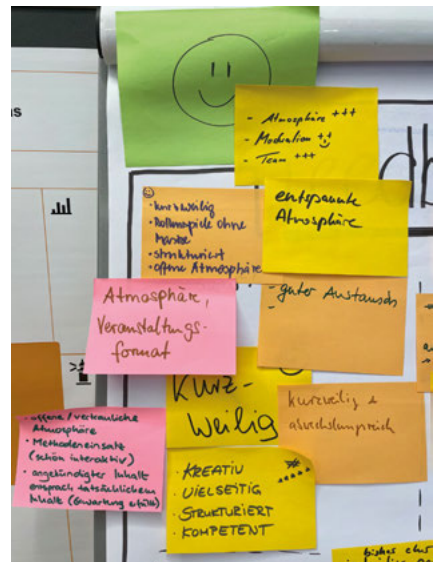 ns
- Atmosphäre +++
- Moderation ++
- Team +++
db
entspannte
Atmosphäre
· kurzweilig
· Rollenspiele ohne
Maske
· strukturiert
· offene Atmosphäre
- guter Austausch
-
Atmosphäre,
Veranstaltungs-
format
Kurz-
weilig
kurzweilig &
abwechslungsreich
· offene/vertrauliche
Atmosphäre
· Methodeneinsatz
(schön interaktiv)
· angekündigter Inhalt
entsprach tatsächlichem
Inhalt (Erwartung erfüllt)
· KREATIV
· VIELSEITIG
· STRUKTURIERT
· KOMPETENT